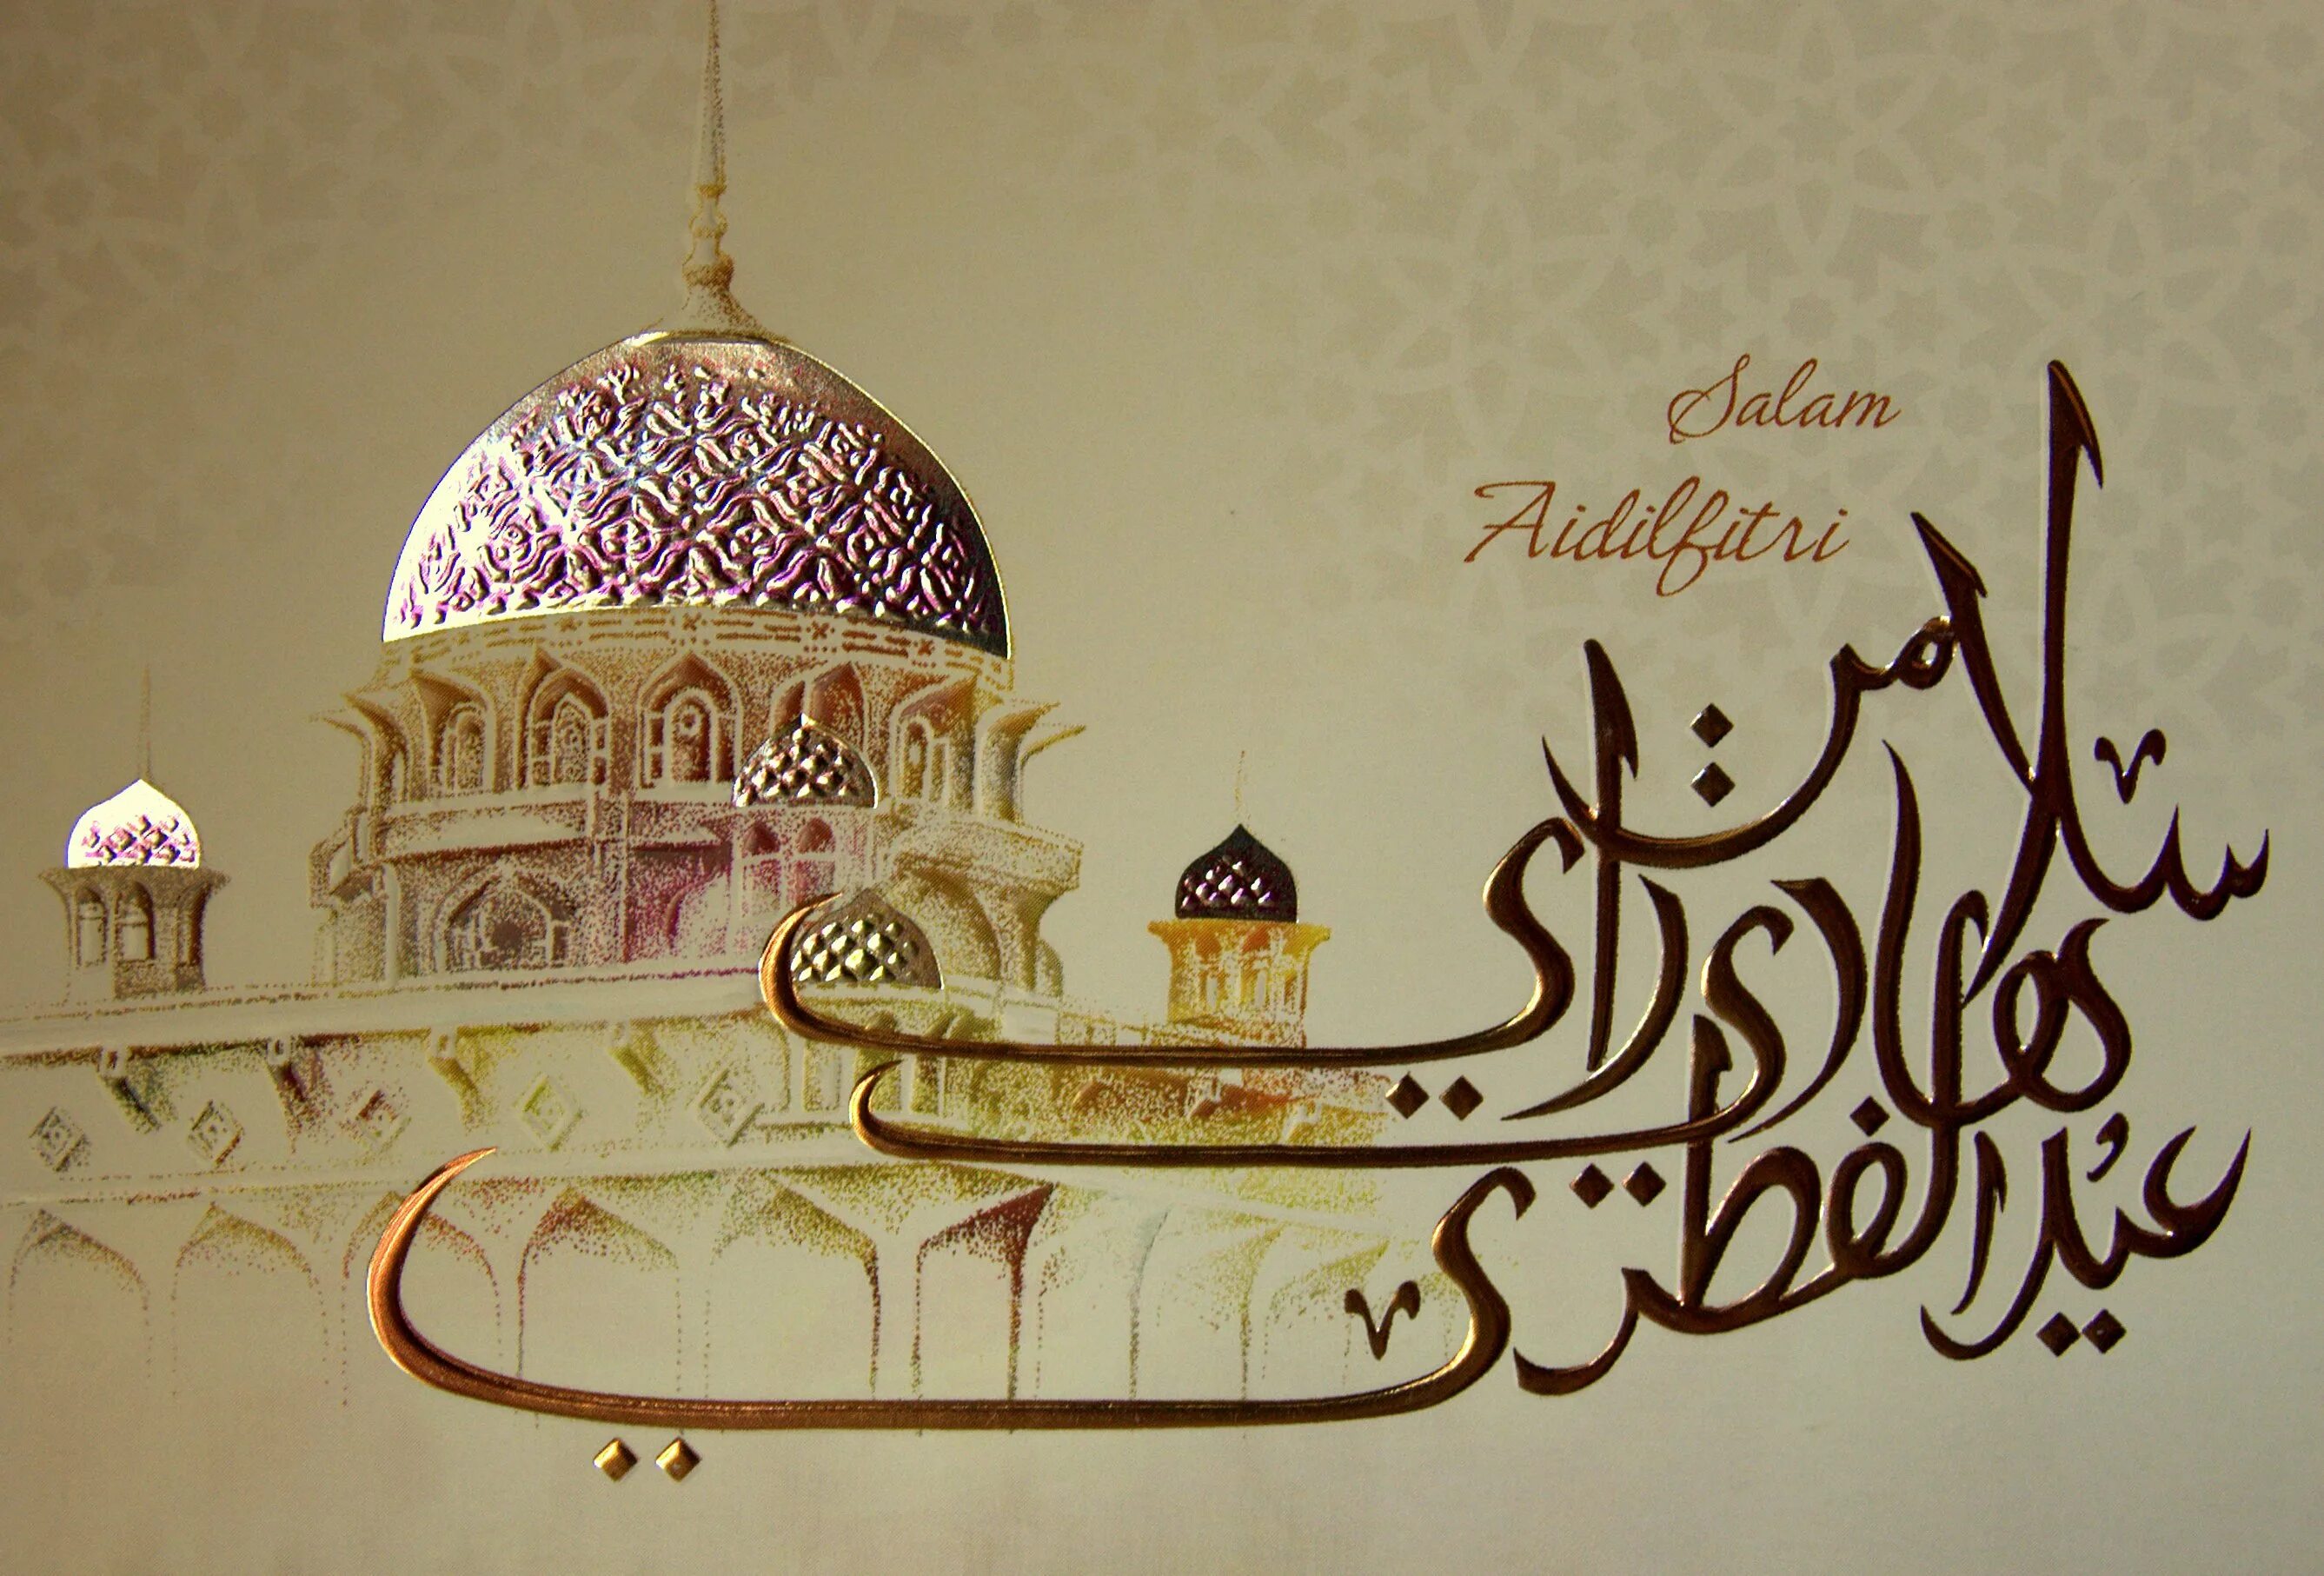 Salam
Aidilfitri
سلامت
هاري راي
عيدالفطري